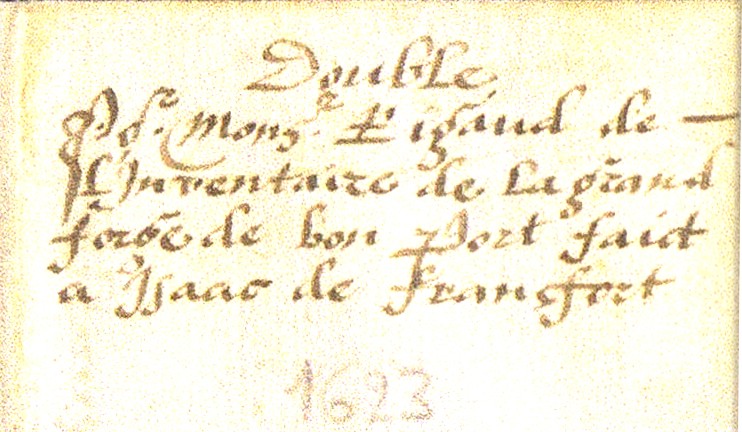 Double
Pr. Mons.r Rigaud de
L'Inventaire de La grand
forge de bon Port faict
a Isaac de Francfort
1623